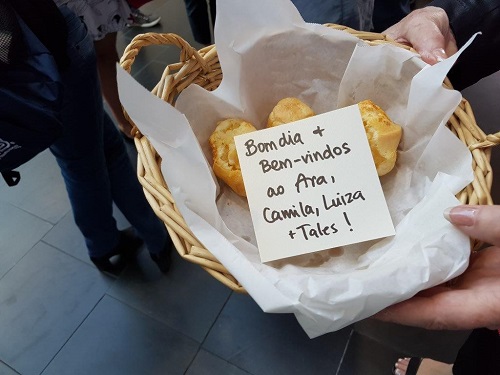 Bom dia +
Bem-vindos
ao Ara,
Camila, Luiza
+ Tales !